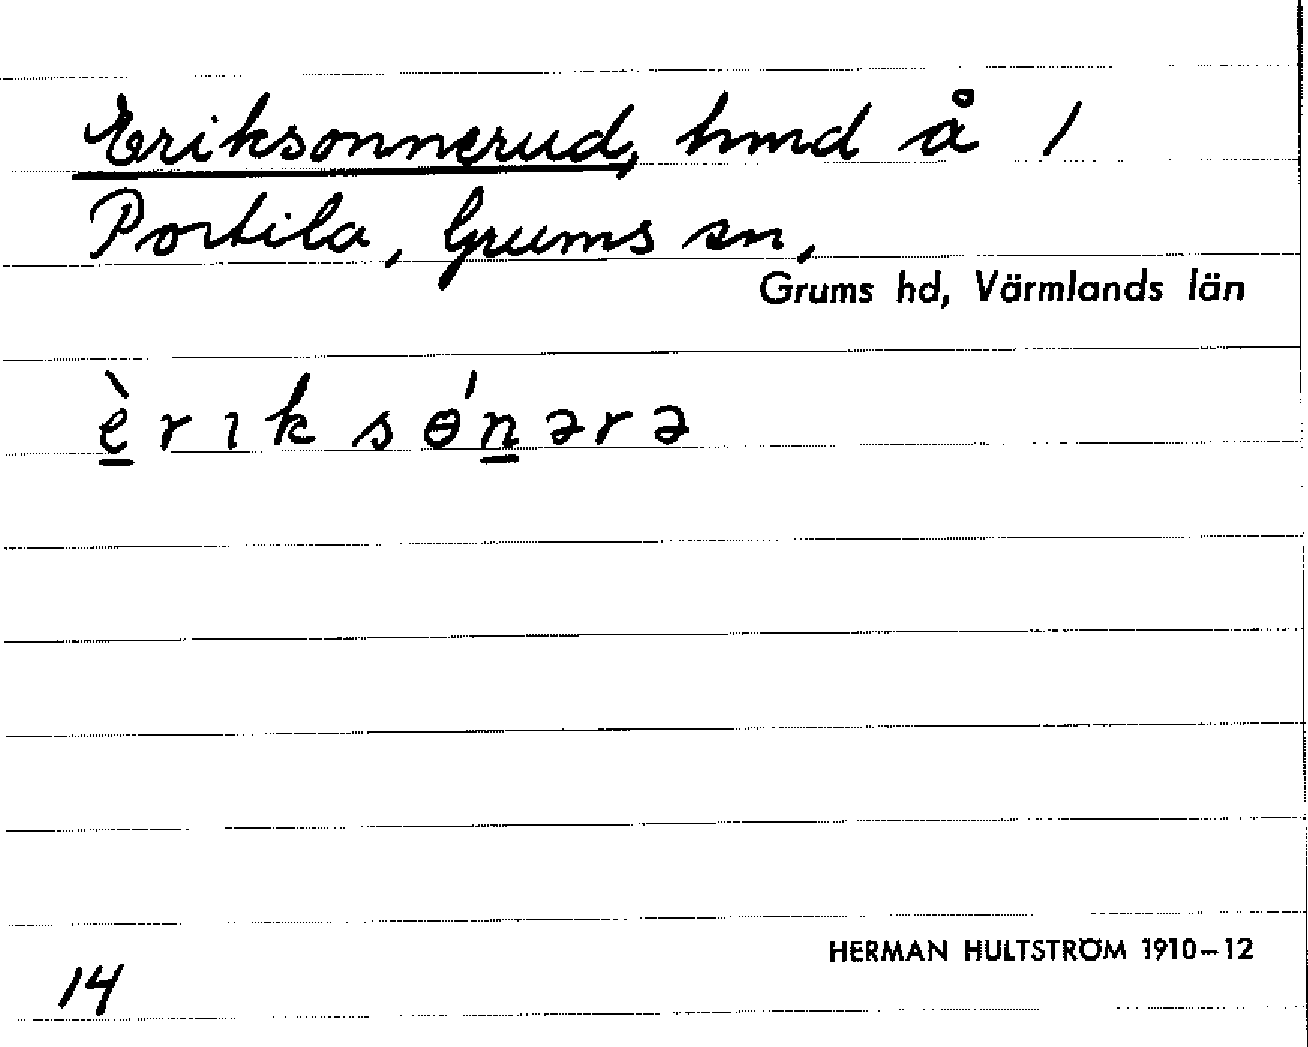 Eriksonnerud, hmd å 1
Portila, Grums sn,
Grums hd, Värmlands län
è̱rıksɵ́ṉərə
HERMAN HULTSTRÖM 1910–12
14